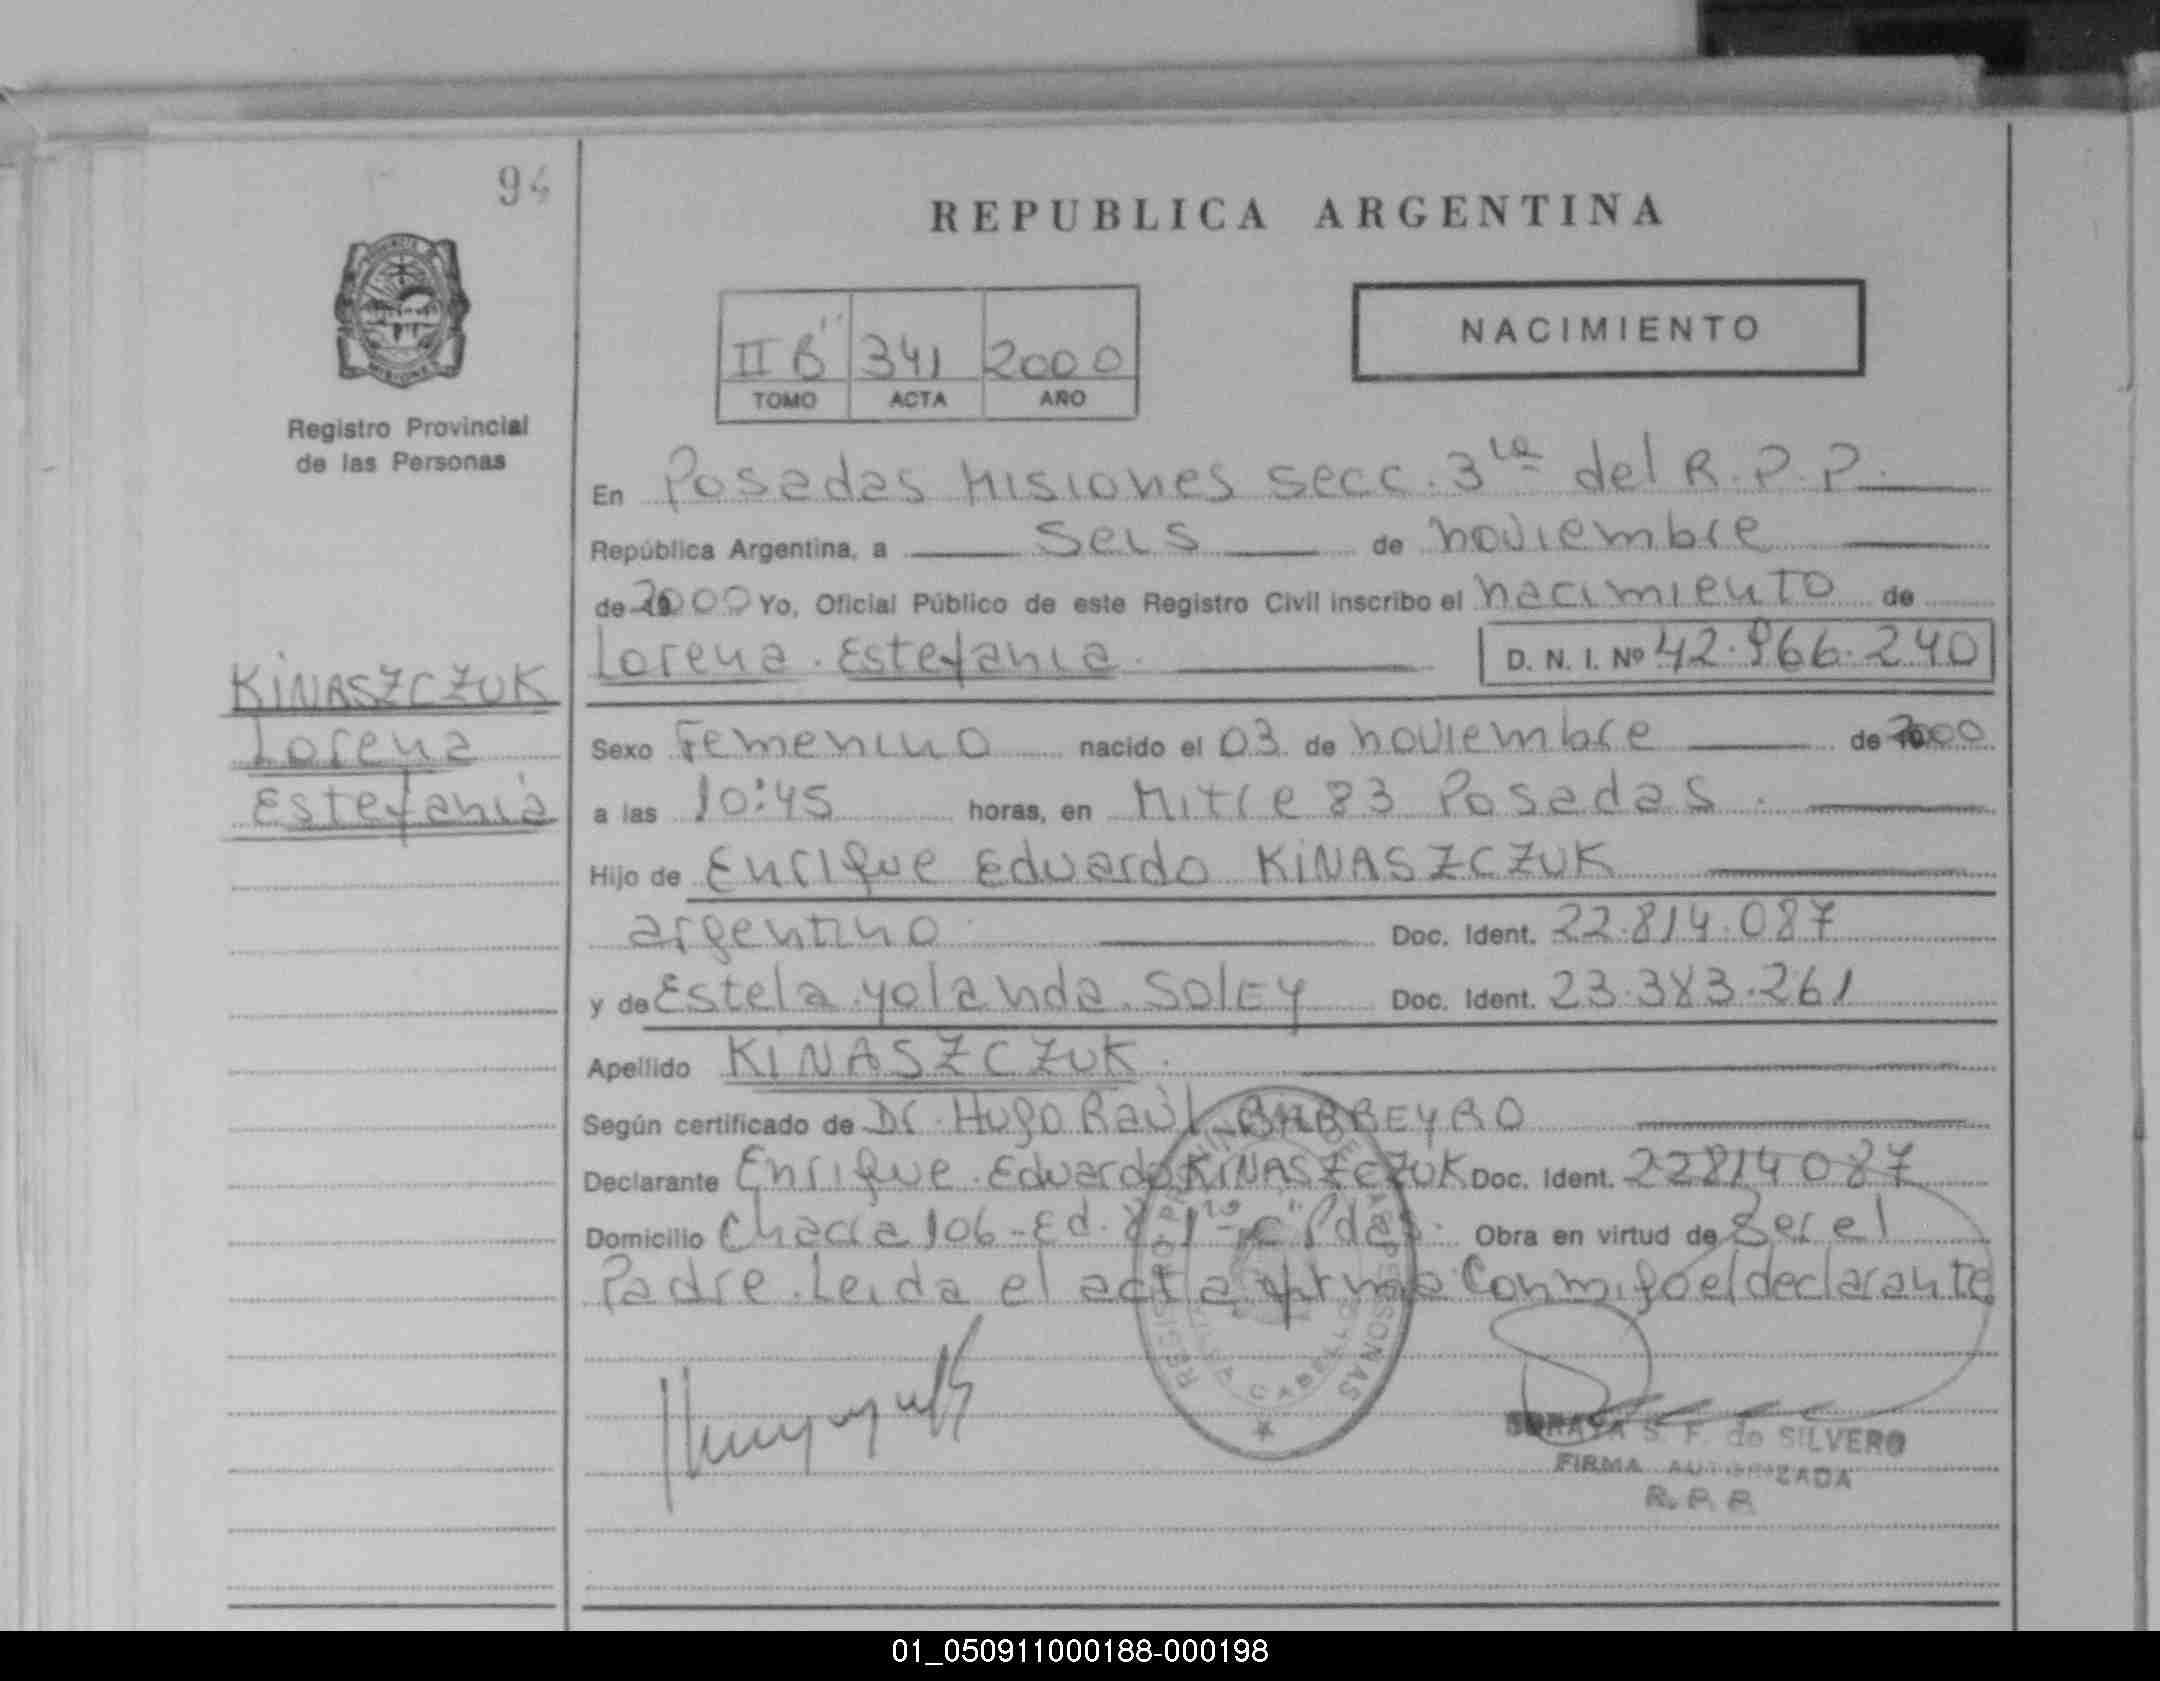 94
REPUBLICA ARGENTINA
II B" 341 2000
TOMO ACTA AÑO
NACIMIENTO
MISIONES
Registro Provincial
de las Personas
En Posadas Misiones secc. 3ra del R.P.P.
República Argentina, a seis de noviembre
de 2000 Yo, Oficial Público de este Registro Civil inscribo el nacimiento de
Lorena Estefania D. N. I. Nº 42.966.240
KINASZCZUK
Lorena
Estefania
Sexo Femenino nacido el 03 de noviembre de 2000
a las 10:45 horas, en Mitre 83 Posadas.
Hijo de Enrique Eduardo KINASZCZUK
argentino Doc. Ident. 22.814.087
y de Estela yolanda SOLEY Doc. Ident. 23.383.261
Apellido KINASZCZUK.
Según certificado de Dr. Hugo Raúl BARREYRO
Declarante Enrique Eduardo KINASZCZUK Doc. Ident. 22814087
Domicilio Chacra 106-Ed. 8 "C" Pdas. Obra en virtud de Ser el
Padre. Leida el acta firma conmigo el declarante
SORAYA S. F. de SILVERO
FIRMA AUTORIZADA
R. P. P.
01_050911000188-000198